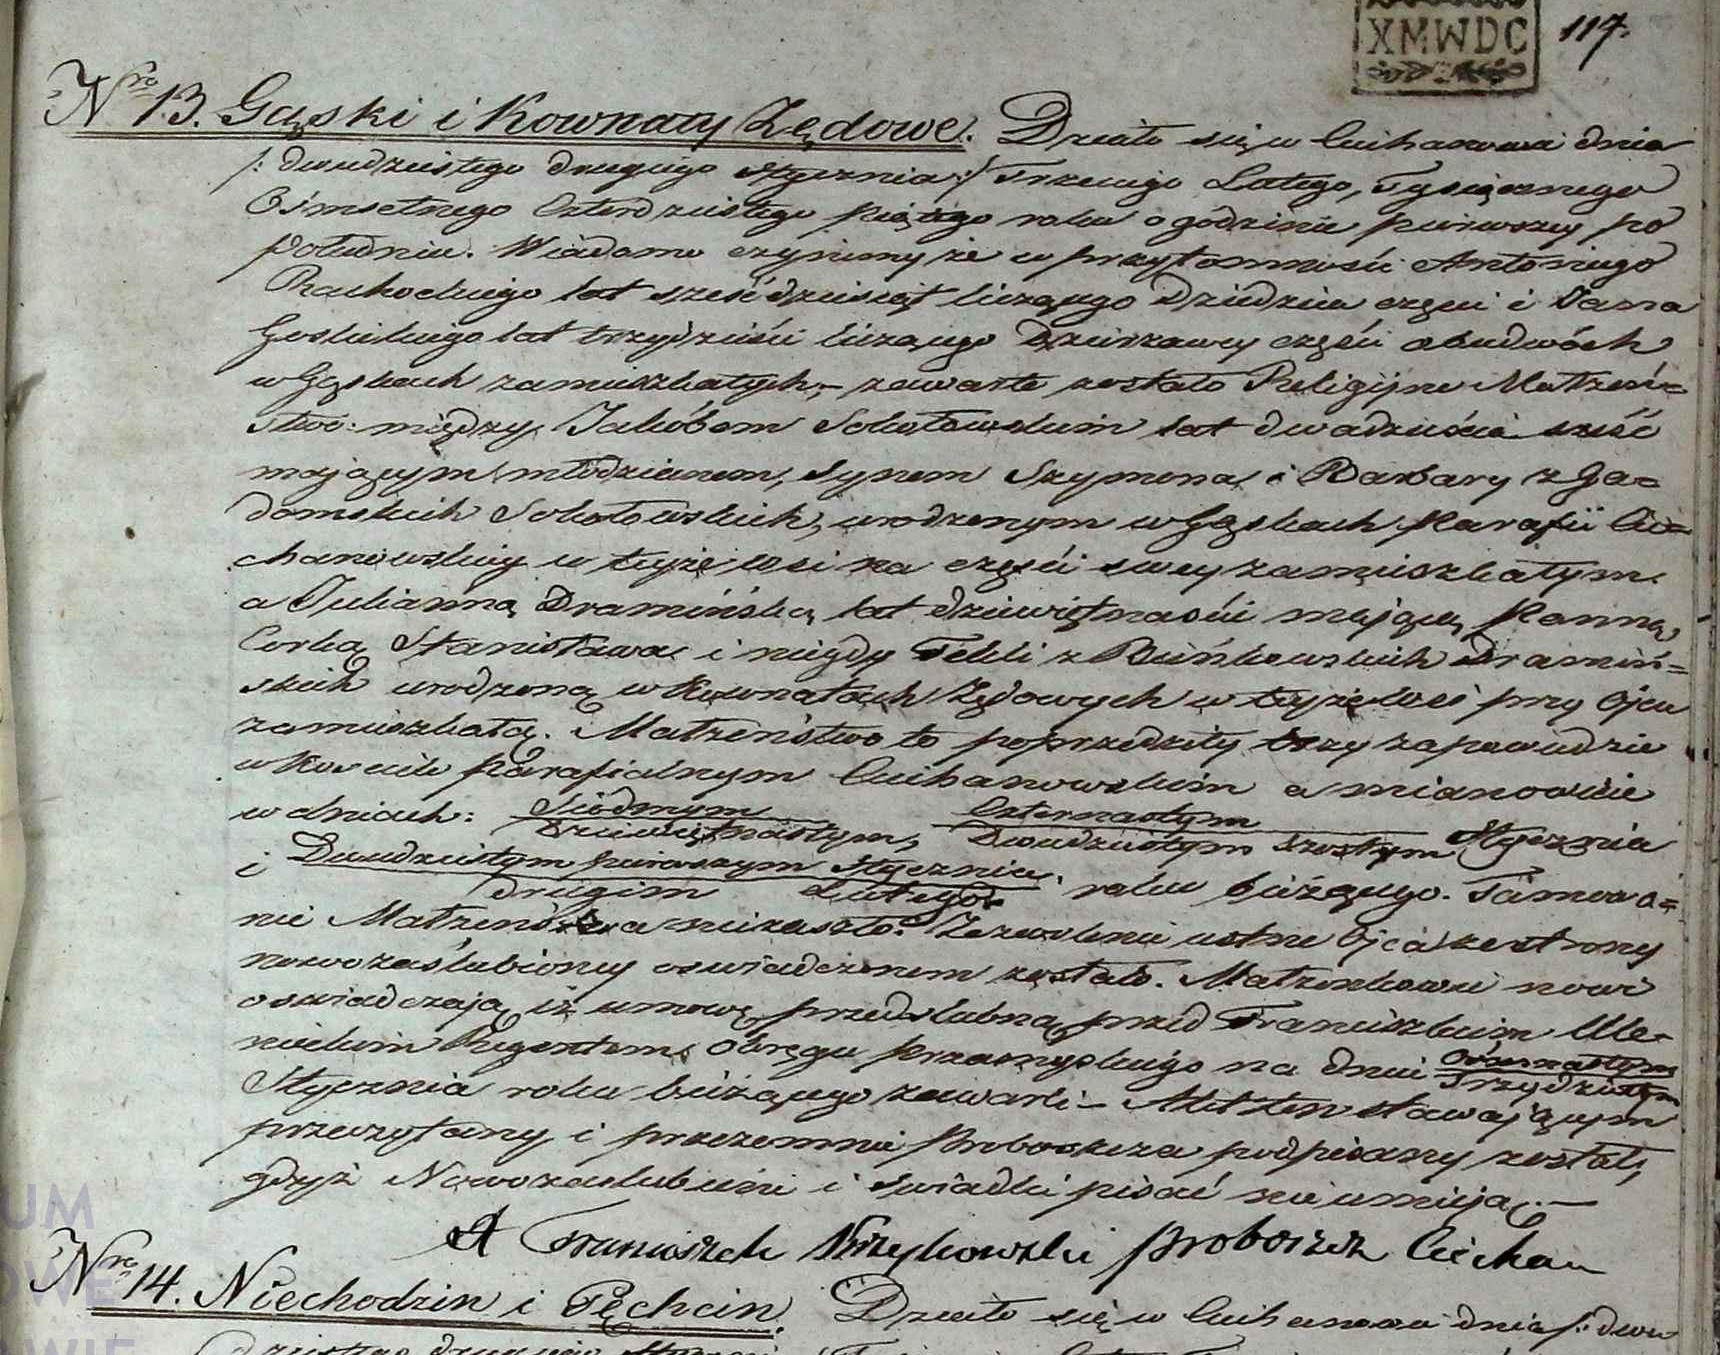 XMWDC
117.
Nro 13. Gąski i Kownaty Żędowe. Działo się w Ciechanowie dnia
/: dwudziestego drugiego Stycznia :/ Trzeciego Lutego, Tysiącznego
Ośmsetnego Czterdziestego piątego roku o godzinie pierwszey po
południu. Wiadomo czyniemy że w przytomności Antoniego
lat sześćdziesiąt liczącego Dziedzica części i Jana
Gosickiego lat trzydzieści liczącego Dzierżawcy części obudwóch
w Gąskach zamieszkałych, – zawarte zostało Religijne Małżeń=
stwo: między Jakóbem Sokołowskim lat dwadzieścia sześć
mającym młodzianem, synem Szymona i Barbary z Ga=
domskich Sokołowskich, urodzonym w Gąskach Parafii Cie=
chanowskiey w teyże wsi na części swey zamieszkałym.
a Julianną Dramińską lat dziewiętnaście mającą Panną,
Corką Stanisława i niegdy Tekli z Bieńkowskich Dramiń=
skich urodzoną w Kownatach Żędowych w teyże wsi przy Ojcu
zamieszkałą. Małżeństwo to poprzedziły trzy zapowiedzie
w Kosciele Parafialnym Ciechanowskim a mianowicie
w dniach: Siódmym Czternastym
Dziewiętnastym, Dwudziestym szóstym Stycznia
i Dwudziestym pierwszym Stycznia roku bieżącego. Tamowa=
drugim Lutego
nie Małżeństwa nie zaszło. Zezwolenie ustne Ojca ze strony
nowozaślubioney oswiadczonem zostało. Małżonkowie nowi
oswiadczają iż umowę przedslubną przed Franciszkiem
Regentem Okręgu Przasnyskiego na dniu Osmnastym
Trzydziestym
Stycznia roku bieżącego zawarli – Akt ten stawającym
przeczytany i przezemnie Proboszcza podpisany został,
gdyż Nowozaslubieni i swiadki pisać nie umieją. –
X Franciszek Krzykowski Proboszcz Ciechan
Nro 14. Niechodzin i Pęchcin. Działo się w Ciechanowie dnia /: dwu